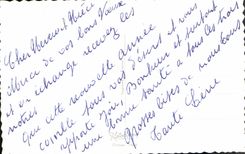 Cher Neveu & Nièce
Merci de vos bons Vœux
et en échange recevez les
nôtres
Que cette nouvelle année
comble tous vos désirs et vous
apporte Joie, Bonheur et surtout
une bonne santé à tous les trois
Grosses bises de nous tous
Tante